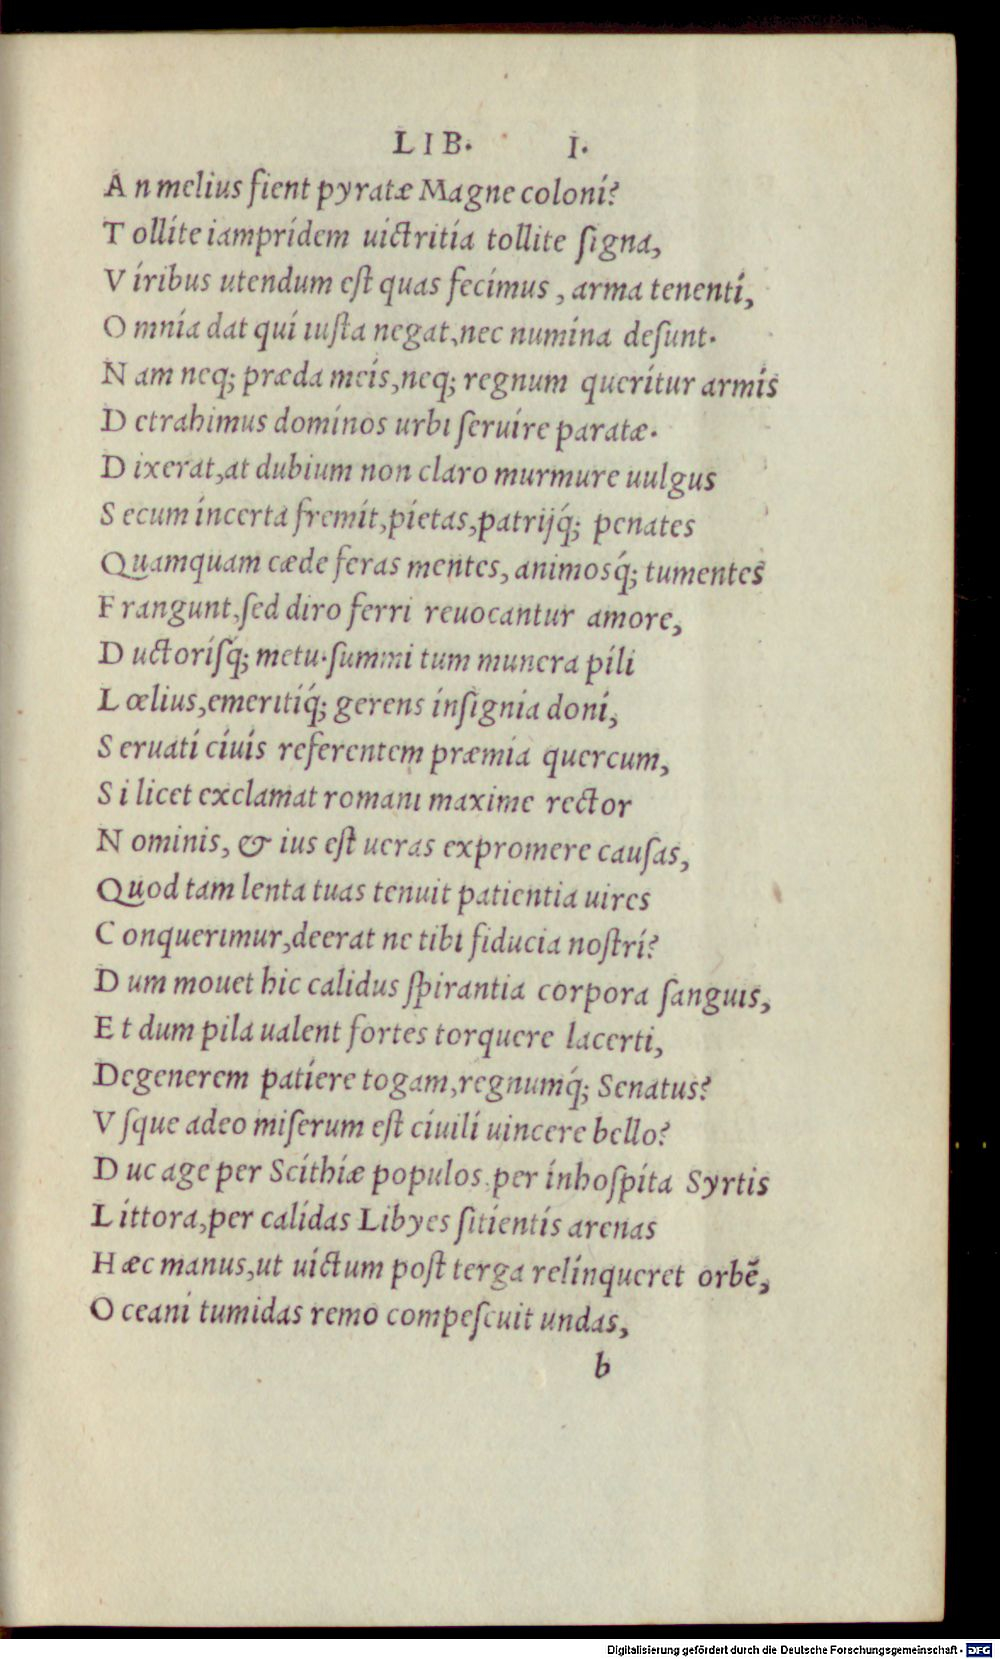 LIB. I.
A n melius fient pyratæ Magne coloni?
T ollite iampridem uictritia tollite signa,
V iribus utendum est quas fecimus, arma tenenti,
O mnia dat qui iusta negat, nec numina desunt.
N am neq; præda meis, neq; regnum queritur armis
D etrahimus dominos urbi seruire paratæ.
D ixerat, at dubium non claro murmure uulgus
S ecum incerta fremit, pietas, patrijq́; penates
Quamquam cæde feras mentes, animosq́; tumentes
F rangunt, sed diro ferri reuocantur amore,
D uctorisq́; metu. summi tum munera pili
L œlius, emeritiq́; gerens insignia doni,
S eruati ciuis referentem præmia quercum,
S i licet exclamat romani maxime rector
N ominis, & ius est ueras expromere causas,
Quod tam lenta tuas tenuit patientia uires
C onquerimur, deerat ne tibi fiducia nostri?
D um mouet hic calidus spirantia corpora sanguis,
E t dum pila ualent fortes torquere lacerti,
Degenerem patiere togam, regnumq́; Senatus?
V sque adeo miserum est ciuili uincere bello?
D uc age per Scithiæ populos, per inhospita Syrtis
L ittora, per calidas Libyes sitientis arenas
H æc manus, ut uictum post terga relinqueret orbē,
O ceani tumidas remo compescuit undas,
b
Digitalisierung gefördert durch die Deutsche Forschungsgemeinschaft - DFG